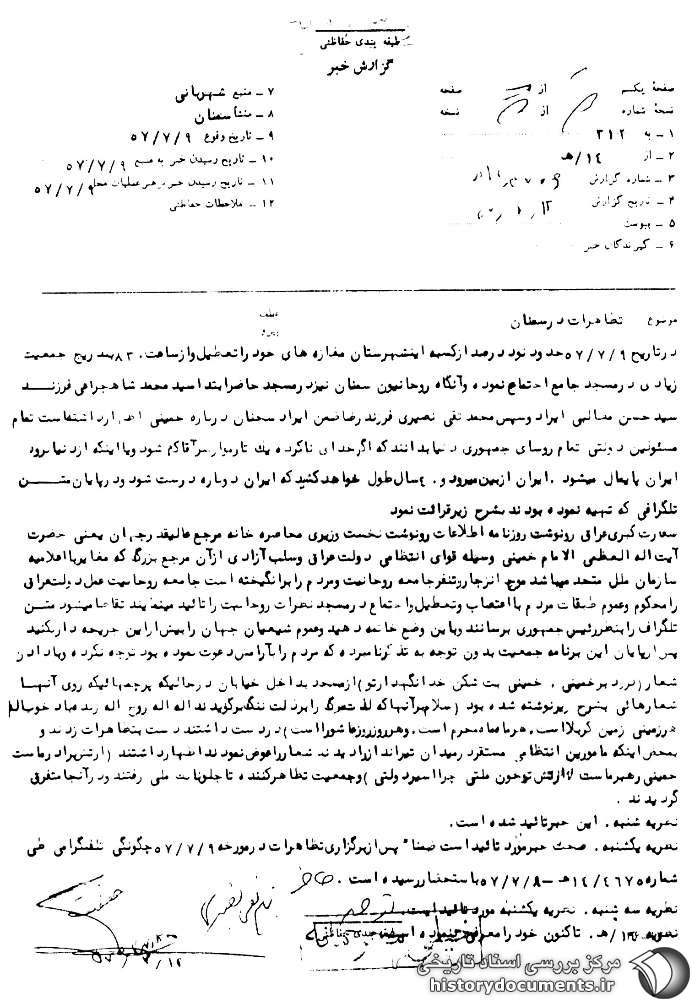 طبقه بندی حفاظتی
گزارش خبر
صفحهٔ یکم از صفحه
نسخهٔ شماره از نسخه
۱ – به ۳۱۲
۲ – از ۱۴/هـ
۳ – شماره گزارش
۴ – تاریخ گزارش
۵ – پیوست
۶ – گیرندگان خبر
۷ – منبع شهربانی
۸ – منشأ سمنان
۹ – تاریخ وقوع ۵۷/۷/۹
۱۰ – تاریخ رسیدن خبر به منبع ۵۷/۷/۹
۱۱ – تاریخ رسیدن خبر برهبر عملیات محل ۵۷/۷/۹
۱۲ – ملاحظات حفاظتی
موضوع تظاهرات در سمنان
عطف
پیرو
در تاریخ ۵۷/۷/۹ حدود نود درصد از کسبه اینشهرستان مغازه های خود را تعطیل و از ساعت ۸۳۰ بتدریج جمعیت
زیادی در مسجد جامع اجتماع نموده و آنگاه روحانیون سمنان نیز در مسجد حاضر ابتدا سید محمد شاهچراغی فرزند
سید حسن مطالبی ایراد و سپس محمد تقی نصیری فرزند رضا ضمن ایراد سخنان درباره خمینی اظهار داشته است تمام
مسئولین دولتی تمام روسای جمهوری دنیا بدانند که اگر خدای ناکرده یک تار مو از سر آقا کم شود و یا اینکه از دنیا برود
ایران پایمال میشود . ایران از بین میرود و ۴۰ سال طول خواهد کشید که ایران دوباره درست شود و در پایان متن
تلگرافی که تهیه نموده بودند بشرح زیر قرائت نمود
سفارت کبری عراق رونوشت روزنامه اطلاعات رونوشت نخست وزیری محاصره خانه مرجع عالیقدر جهان یعنی حضرت
آیت اله العظمی الامام خمینی وسیله قوای انتظامی دولت عراق و سلب آزادی از آن مرجع بزرگ که مغایر با اعلامیه
سازمان ملل متحد میباشد موج انزجار و تنفر جامعه روحانیت و مردم را برانگیخته است جامعه روحانیت عمل دولت عراق
را محکوم و عموم طبقات مردم با اعتصاب و تعطیل و اجتماع در مسجد نظرات روحانیت را تائید مینمایند تقاضا میشود متن
تلگراف را بنظر رئیس جمهوری برسانند و باین وضع خاتمه دهید و عموم شیعیان جهان را بیش از این جریحه دار نکنید
پس از پایان این برنامه جمعیت بدون توجه به تذکرنامبرده که مردم را بآرامش دعوت نموده بود توجه نکرده و با دادن
شعار ( درود بر خمینی . خمینی بت شکن خدا نگهدار تو ) از مسجد بداخل خیابان در حالیکه پرچمهائیکه روی آنها
شعارهائی بشرح زیر نوشته شده بود ( سلام بر آنها که مرگ را بر ذلت ننگ برگزیدند اله اله روح اله
هر زمینی زمین کربلا است . هر ماه ماه محرم است . و هر روز روز عاشورا است ) در دست داشتند دست بتظاهرات زدند و
بمحض اینکه مامورین انتظامی مستقر در میدان تیرانداز را دیدند شعار را عوض نمودند اظهار داشتند ( ارتش برادر ماست
خمینی رهبر ماست / ارتش تو خون ملتی چرا اسیر دولتی ) و جمعیت تظاهر کننده تا جلو بانک ملی رفتند و در آنجا متفرق
گردیدند .
نظریه شنبه . این خبر تائید شده است .
نظریه یکشنبه . صحت خبر مورد تائید است ضمنا" پس از برگزاری تظاهرات در مورخه ۵۷/۷/۹ چگونگی تلفنگرامی طی
شماره ۱۴/۴۶۷۵ هـ – ۵۷/۷/۸ باستحضار رسیده است .
نظریه سه شنبه . نظریه یکشنبه مورد تائید است .
نظریه ۱۴/هـ . تاکنون خود را معرفی ننموده است
مرکز بررسی اسناد تاریخی
historydocuments.ir